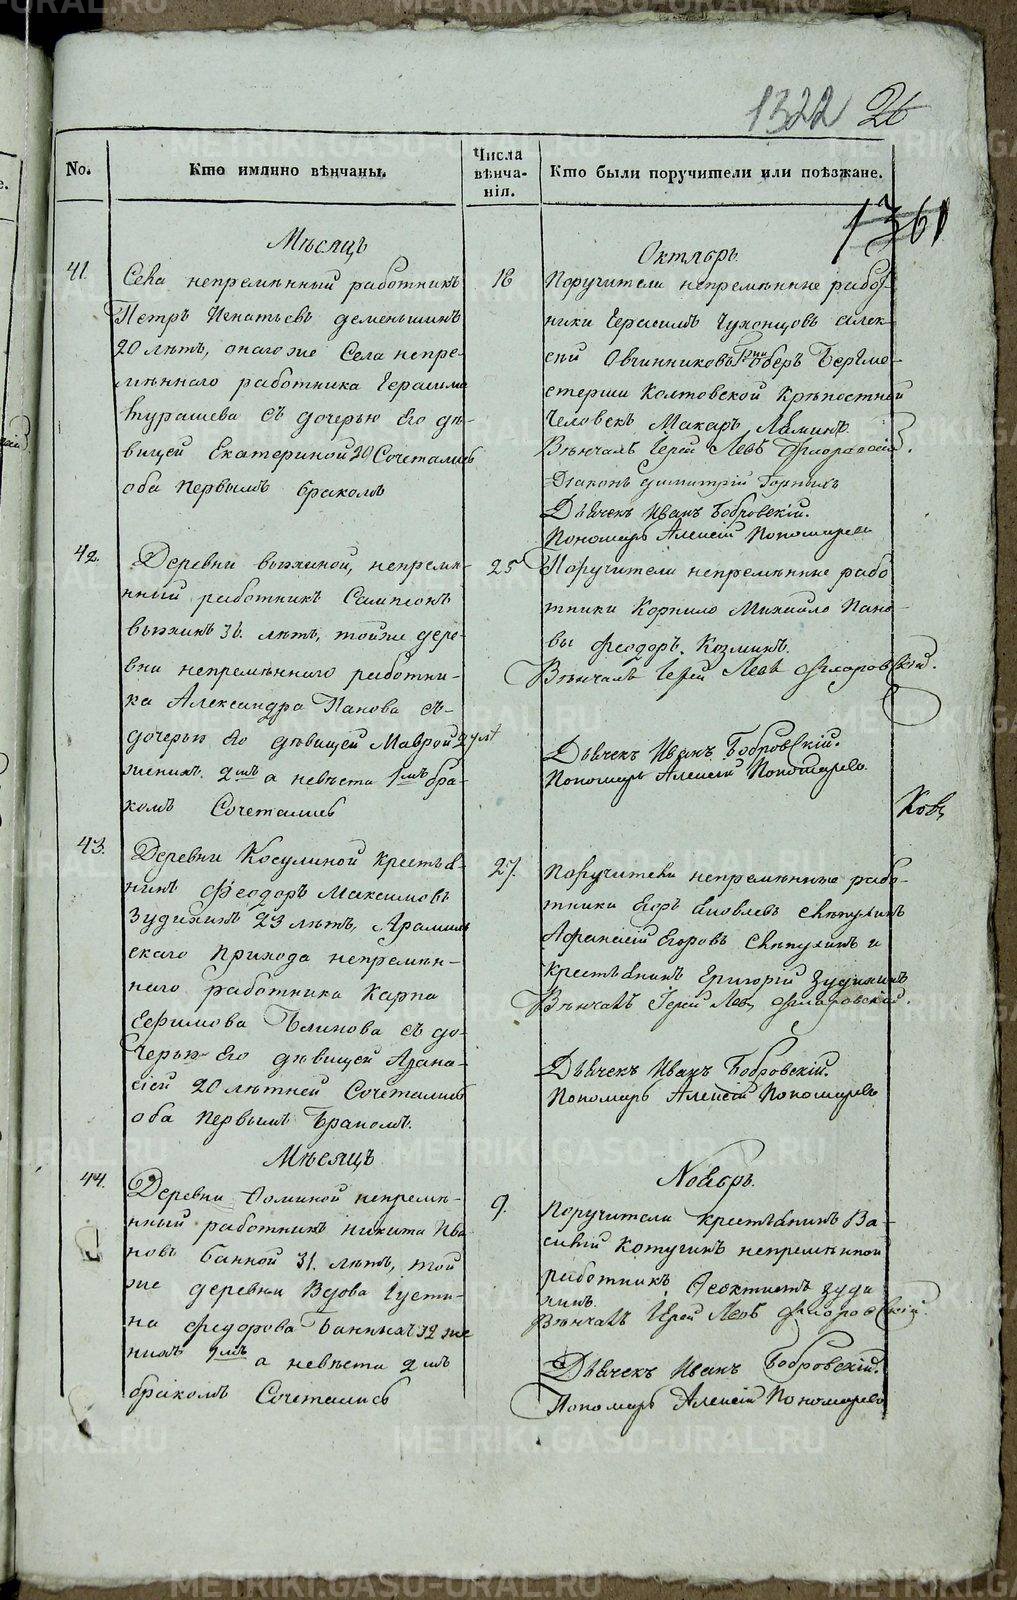 1322 26
No.
Кто имянно вѣнчаны.
Числа
вѣнча-
нія.
Кто были поручители или поѣзжане.
1361
Мѣсяцъ
Октябрь.
41.
Села непремѣнный работникъ
Петръ Игнатьевъ деменьшинъ
20 лѣтъ, онаго же Села непре-
мѣннаго работника Герасима
Турашева съ дочерью его дѣ-
вицей Екатериной 20 Сочетались
оба первымъ бракомъ
18
Поручители непремѣнные рабо-
тники Герасимъ Чухонцовъ алек-
сей Овчинниковъ оберъ Бергме-
стерши Колтовской Крѣпостный
Человекъ Макаръ
Вѣнчалъ Іерей Левъ Флоровскій.
Діаконъ Димитрій Горныхъ
Дьячекъ Иванъ Бобровскій.
Пономарь Алексій Пономаревъ
42.
Деревни вьюхиной, непремѣ-
нный работникъ Сампсонъ
вьюхинъ 36. лѣтъ, тойже дере-
вни непремѣннаго работни-
ка Александра Панова съ-
дочерью Его дѣвицей Маврой 27 лѣт
женихъ 2мъ а невѣста 1мъ бра-
комъ Сочетались
25
Поручители непремѣнные рабо
тники Корнило Михайло Пано-
вы Феодоръ Козминъ.
Вѣнчалъ Іерей Левъ Флоровскій.
Дьячекъ Иванъ Бобровскій.
Пономарь Алексій Пономаревъ
43.
Деревни Косулиной крестья-
нинъ Феодоръ Максимовъ
Зудихинъ 23 лѣтъ, Арамиль
скаго Прихода непремѣн-
наго работника Карпа
Ефимова Блинова съ до-
черью Его дѣвицей Афана-
сіей 20 лѣтней Сочетались
оба первымъ Бракомъ.
27.
Поручители непремѣнные рабо-
тники Егоръ Яковлевъ
Афанасій Егоровъ и
крестьянинъ Григорій Зудихинъ
Вѣнчалъ Іерей Левъ Флоровскій.
Дьячекъ Иванъ Бобровскій.
Пономарь Алексій Пономаревъ
Мѣсяцъ
Ноябрь.
44.
Деревни Фоминой непремѣ-
нный работникъ никита Ива
новъ банной 31. лѣтъ, той
же деревни Вдова Густи-
на Федорова Банныхъ 32 же
нихъ 1мъ а невѣста 2мъ
бракомъ Сочетались
9.
Поручители крестьянинъ Ва-
силій Котугинъ непремѣнной
работникъ Феоктистъ зуди
хинъ.
Вѣнчалъ Іерей Левъ Флоровскій.
Дьячекъ Иванъ Бобровскій.
Пономарь Алексій Пономаревъ
METRIKI.GASO-URAL.RU